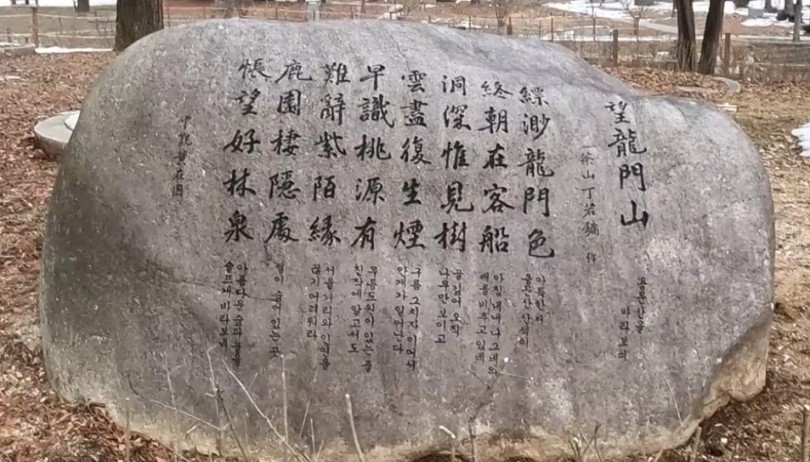 望龍門山
용문산을
바라보며
茶山 丁若鏞 作
縹渺龍門色
아득한 저
용문산 산색이
終朝在客船
아침 내내 나그네의
배를 비추고 있네
洞深惟見樹
골 깊어 오직
나무만 보이고
雲盡復生煙
구름 그치자 이어서
안개가 일어난다
早識桃源有
무릉도원이 있는 줄
진작에 알고서도
難辭紫陌緣
서울 거리와 인연을
끊기 어려워라
鹿園棲隱處
숨어 있는 곳
悵望好林泉
아름다운 숲과 샘물
슬프게 바라보네